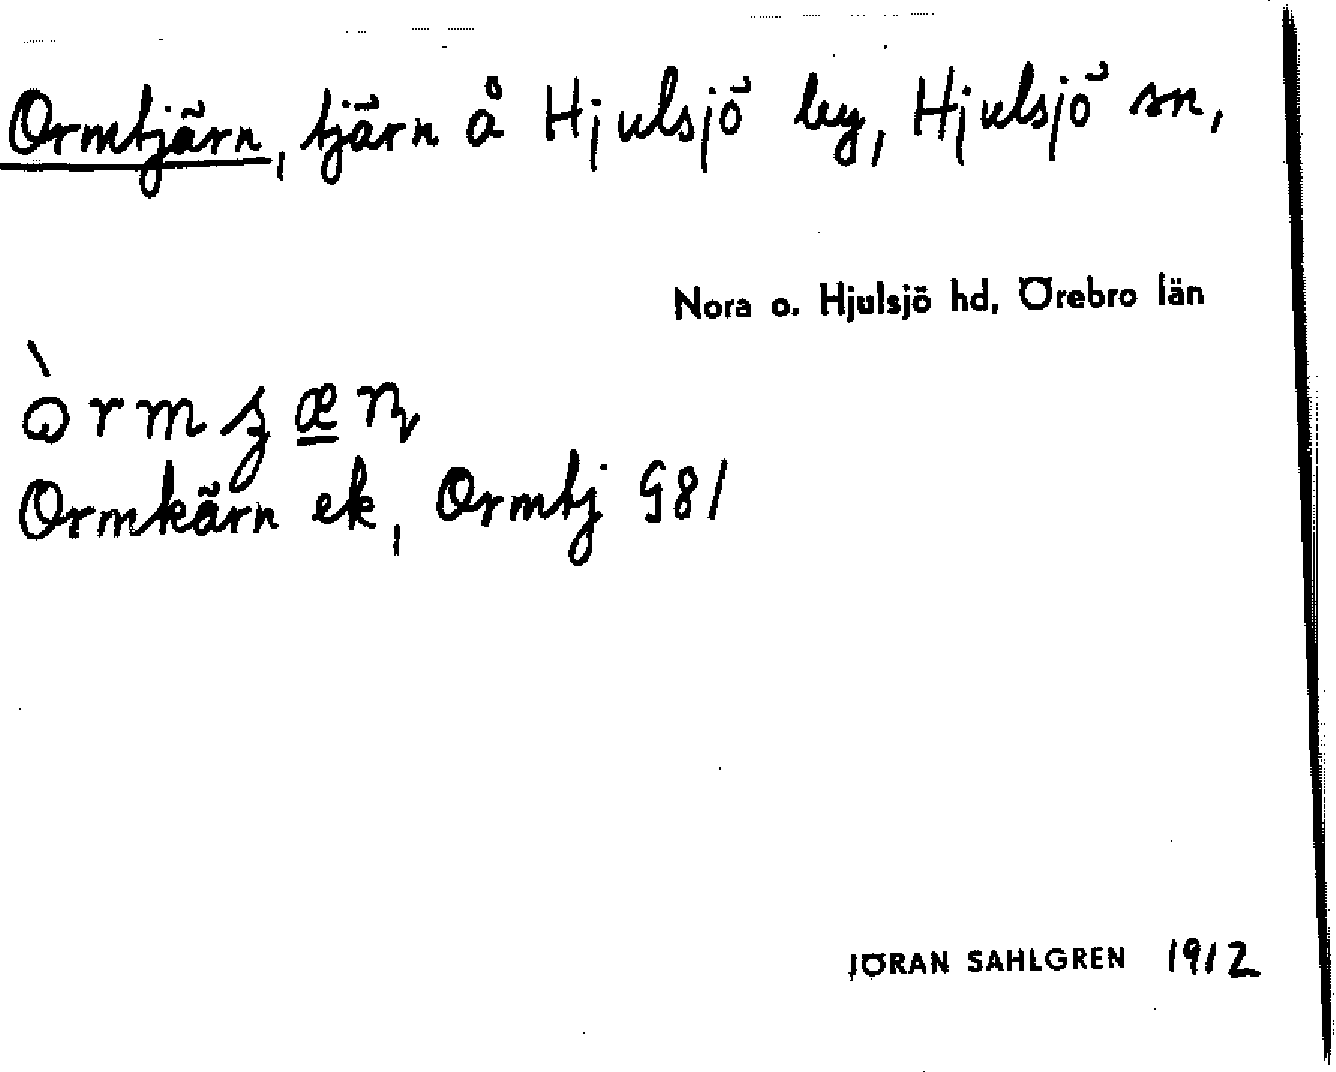 Ormtjärn, tjärn å Hjulsjö by, Hjulsjö sn,
Nora o. Hjulsjö hd, Örebro län
Ormkärn ek, Ormtj G81
JÖRAN SAHLGREN 1912